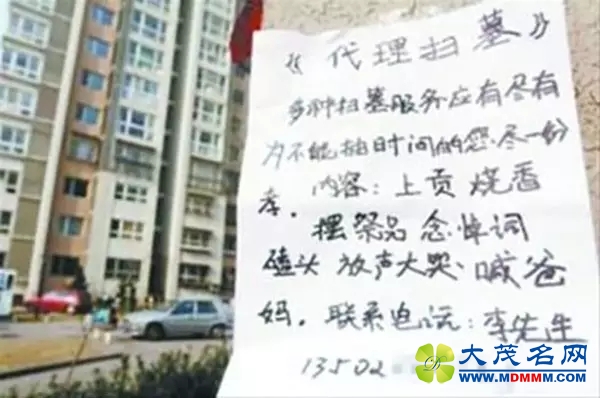 《代理扫墓》
多种扫墓服务应有尽有
为不能抽时间的您.尽一份
孝.内容:上贡 烧香
摆祭品 念悼词
磕头 放声大哭.喊爸
妈.联系电话:李先生
13502
大茂名网
WWW.MDMMM.COM